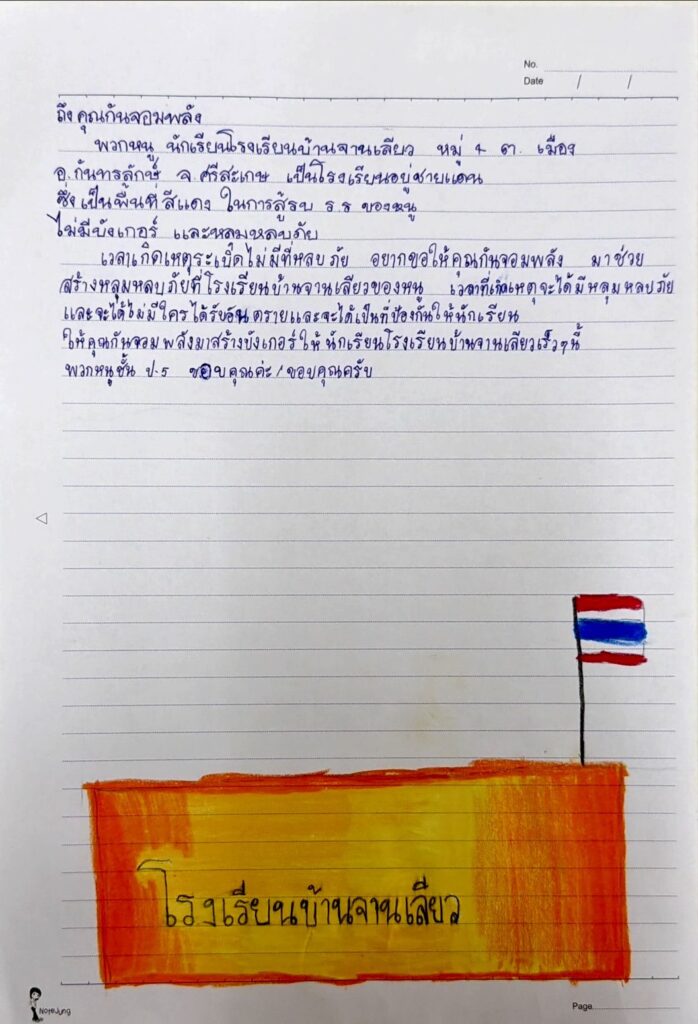 No.
Date / /
ถึงคุณกันจอมพลัง
พวกหนู นักเรียนโรงเรียนบ้านจานเลียว หมู่ 4 ต. เมือง
อ.กันทรลักษ์ จ.ศรีสะเกษ เป็นโรงเรียนอยู่ชายแดน
ซึ่งเป็นพื้นที่สีแดง ในการสู้รบ ร.ร ของหนู
ไม่มีบังเกอร์ และหลุมหลบภัย
เวลาเกิดเหตุระเบิดไม่มีที่หลบภัย อยากขอให้คุณกันจอมพลัง มาช่วย
สร้างหลุมหลบภัยที่โรงเรียนบ้านจานเลียวของหนู เวลาที่เกิดเหตุจะได้มีหลุมหลบภัย
และจะได้ไม่มีใครได้รับอันตรายและจะได้เป็นที่ป้องกันให้นักเรียน
ให้คุณกันจอมพลังมาสร้างบังเกอร์ให้นักเรียนโรงเรียนบ้านจานเลียวเร็วๆนี้
พวกหนูชั้น ป.5 ขอบคุณค่ะ/ขอบคุณครับ
โรงเรียนบ้านจานเลียว
NoteJung
Page